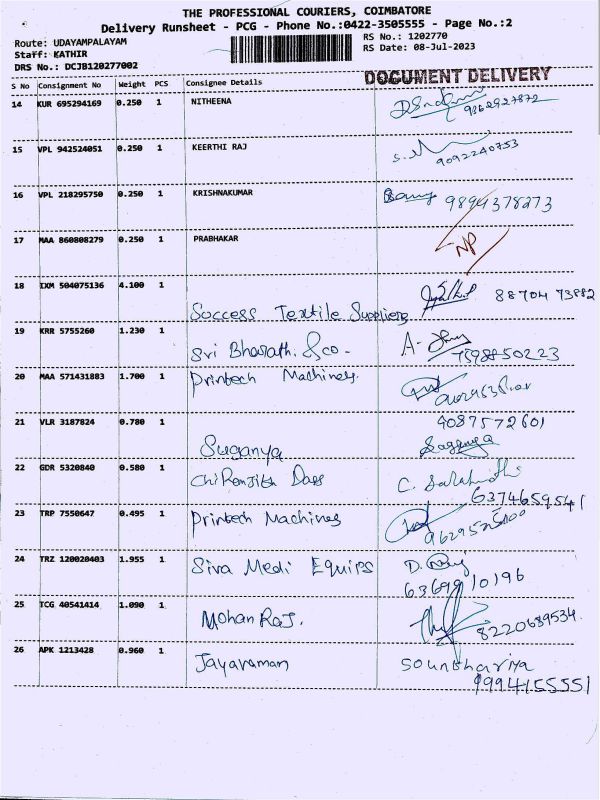 THE PROFESSIONAL COURIERS, COIMBATORE
Delivery Runsheet - PCG - Phone No.:0422-3505555 - Page No.:2
Route: UDAYAMPALAYAM
Staff: KATHIR
DRS No.: DCJB120277002
RS No.: 1202770
RS Date: 08-Jul-2023
DOCUMENT DELIVERY
S No Consignment No Weight PCS Consignee Details
14 KUR 695294169 0.250 1 NITHEENA
9362927872
15 VPL 942524051 0.250 1 KEERTHI RAJ
9092240753
16 VPL 218295750 0.250 1 KRISHNAKUMAR
9894378273
17 MAA 860808279 0.250 1 PRABHAKAR NP
18 IXM 504075136 4.100 1
Success Textile Suppliers 88704 73882
19 KRR 5755260 1.230 1
Sri Bharath & co - A-
7598850223
20 MAA 571431883 1.700 1 Printech Machines.
21 VLR 3187824 0.780 1 9087572601
Suganya
22 GDR 5320840 0.580 1 Chiranjith Dass C.
6374659541
23 TRP 7550647 0.495 1 Printech Machines
24 TRZ 120020403 1.955 1 Siva Medi Equips D.
6369910196
25 TCG 40541414 1.090 1 Mohan Raj.
8220689534
26 APK 1213428 0.960 1 Jayaraman Sounthariya
9994155551